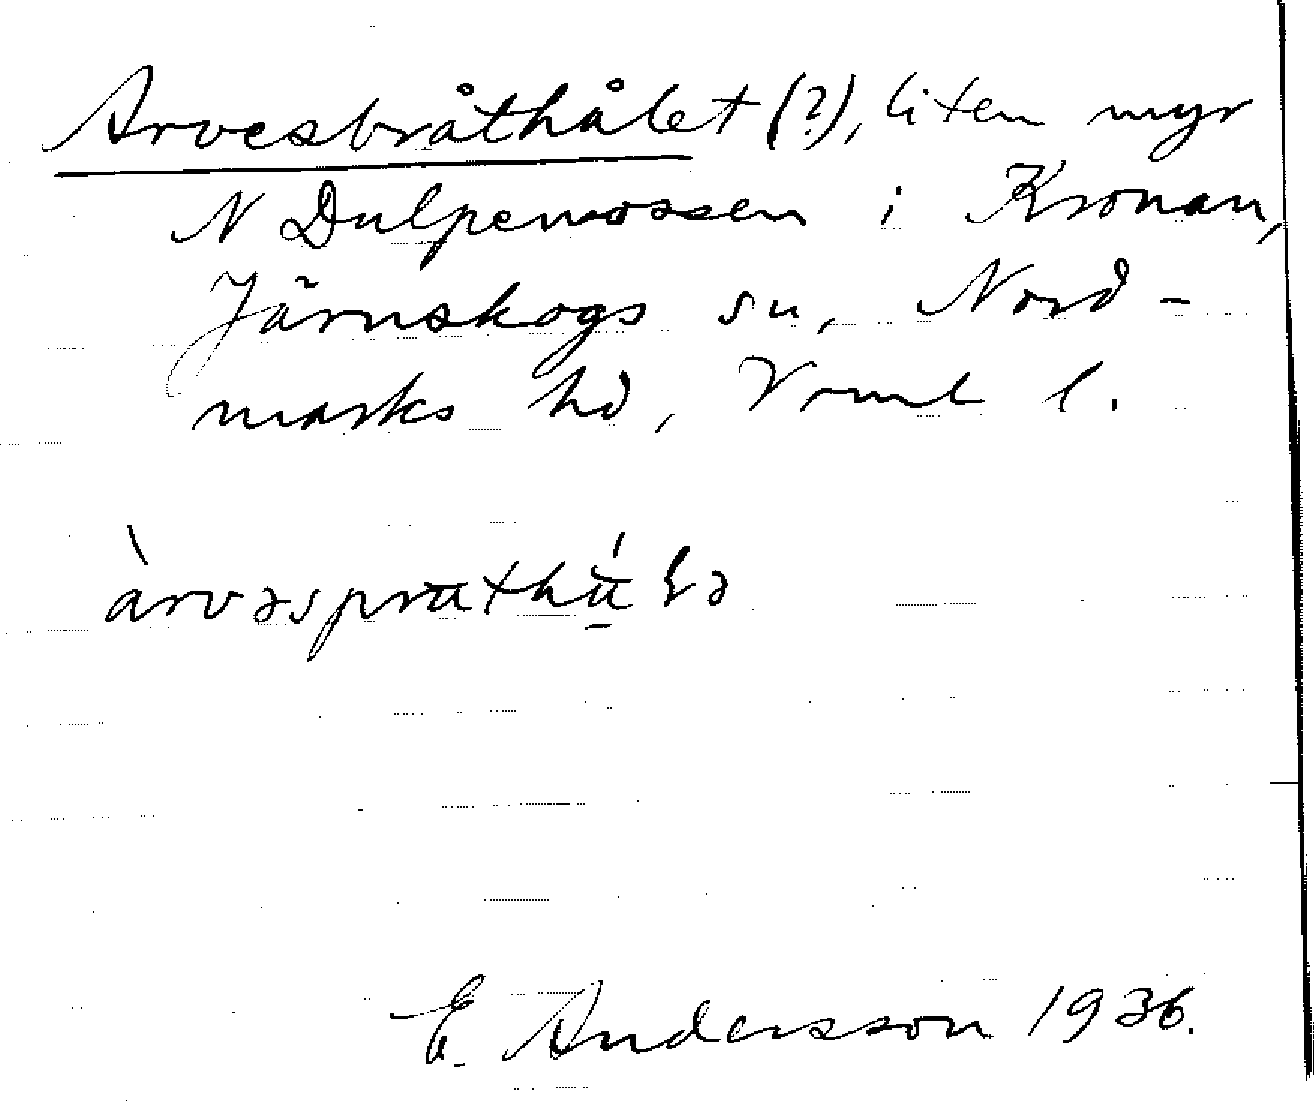 Arvesbråthålet (?), liten myr
N Dulpemossen i Kronan,
Järnskogs sn, Nord-
marks hd, Vrml l.
E. Andersson 1936.